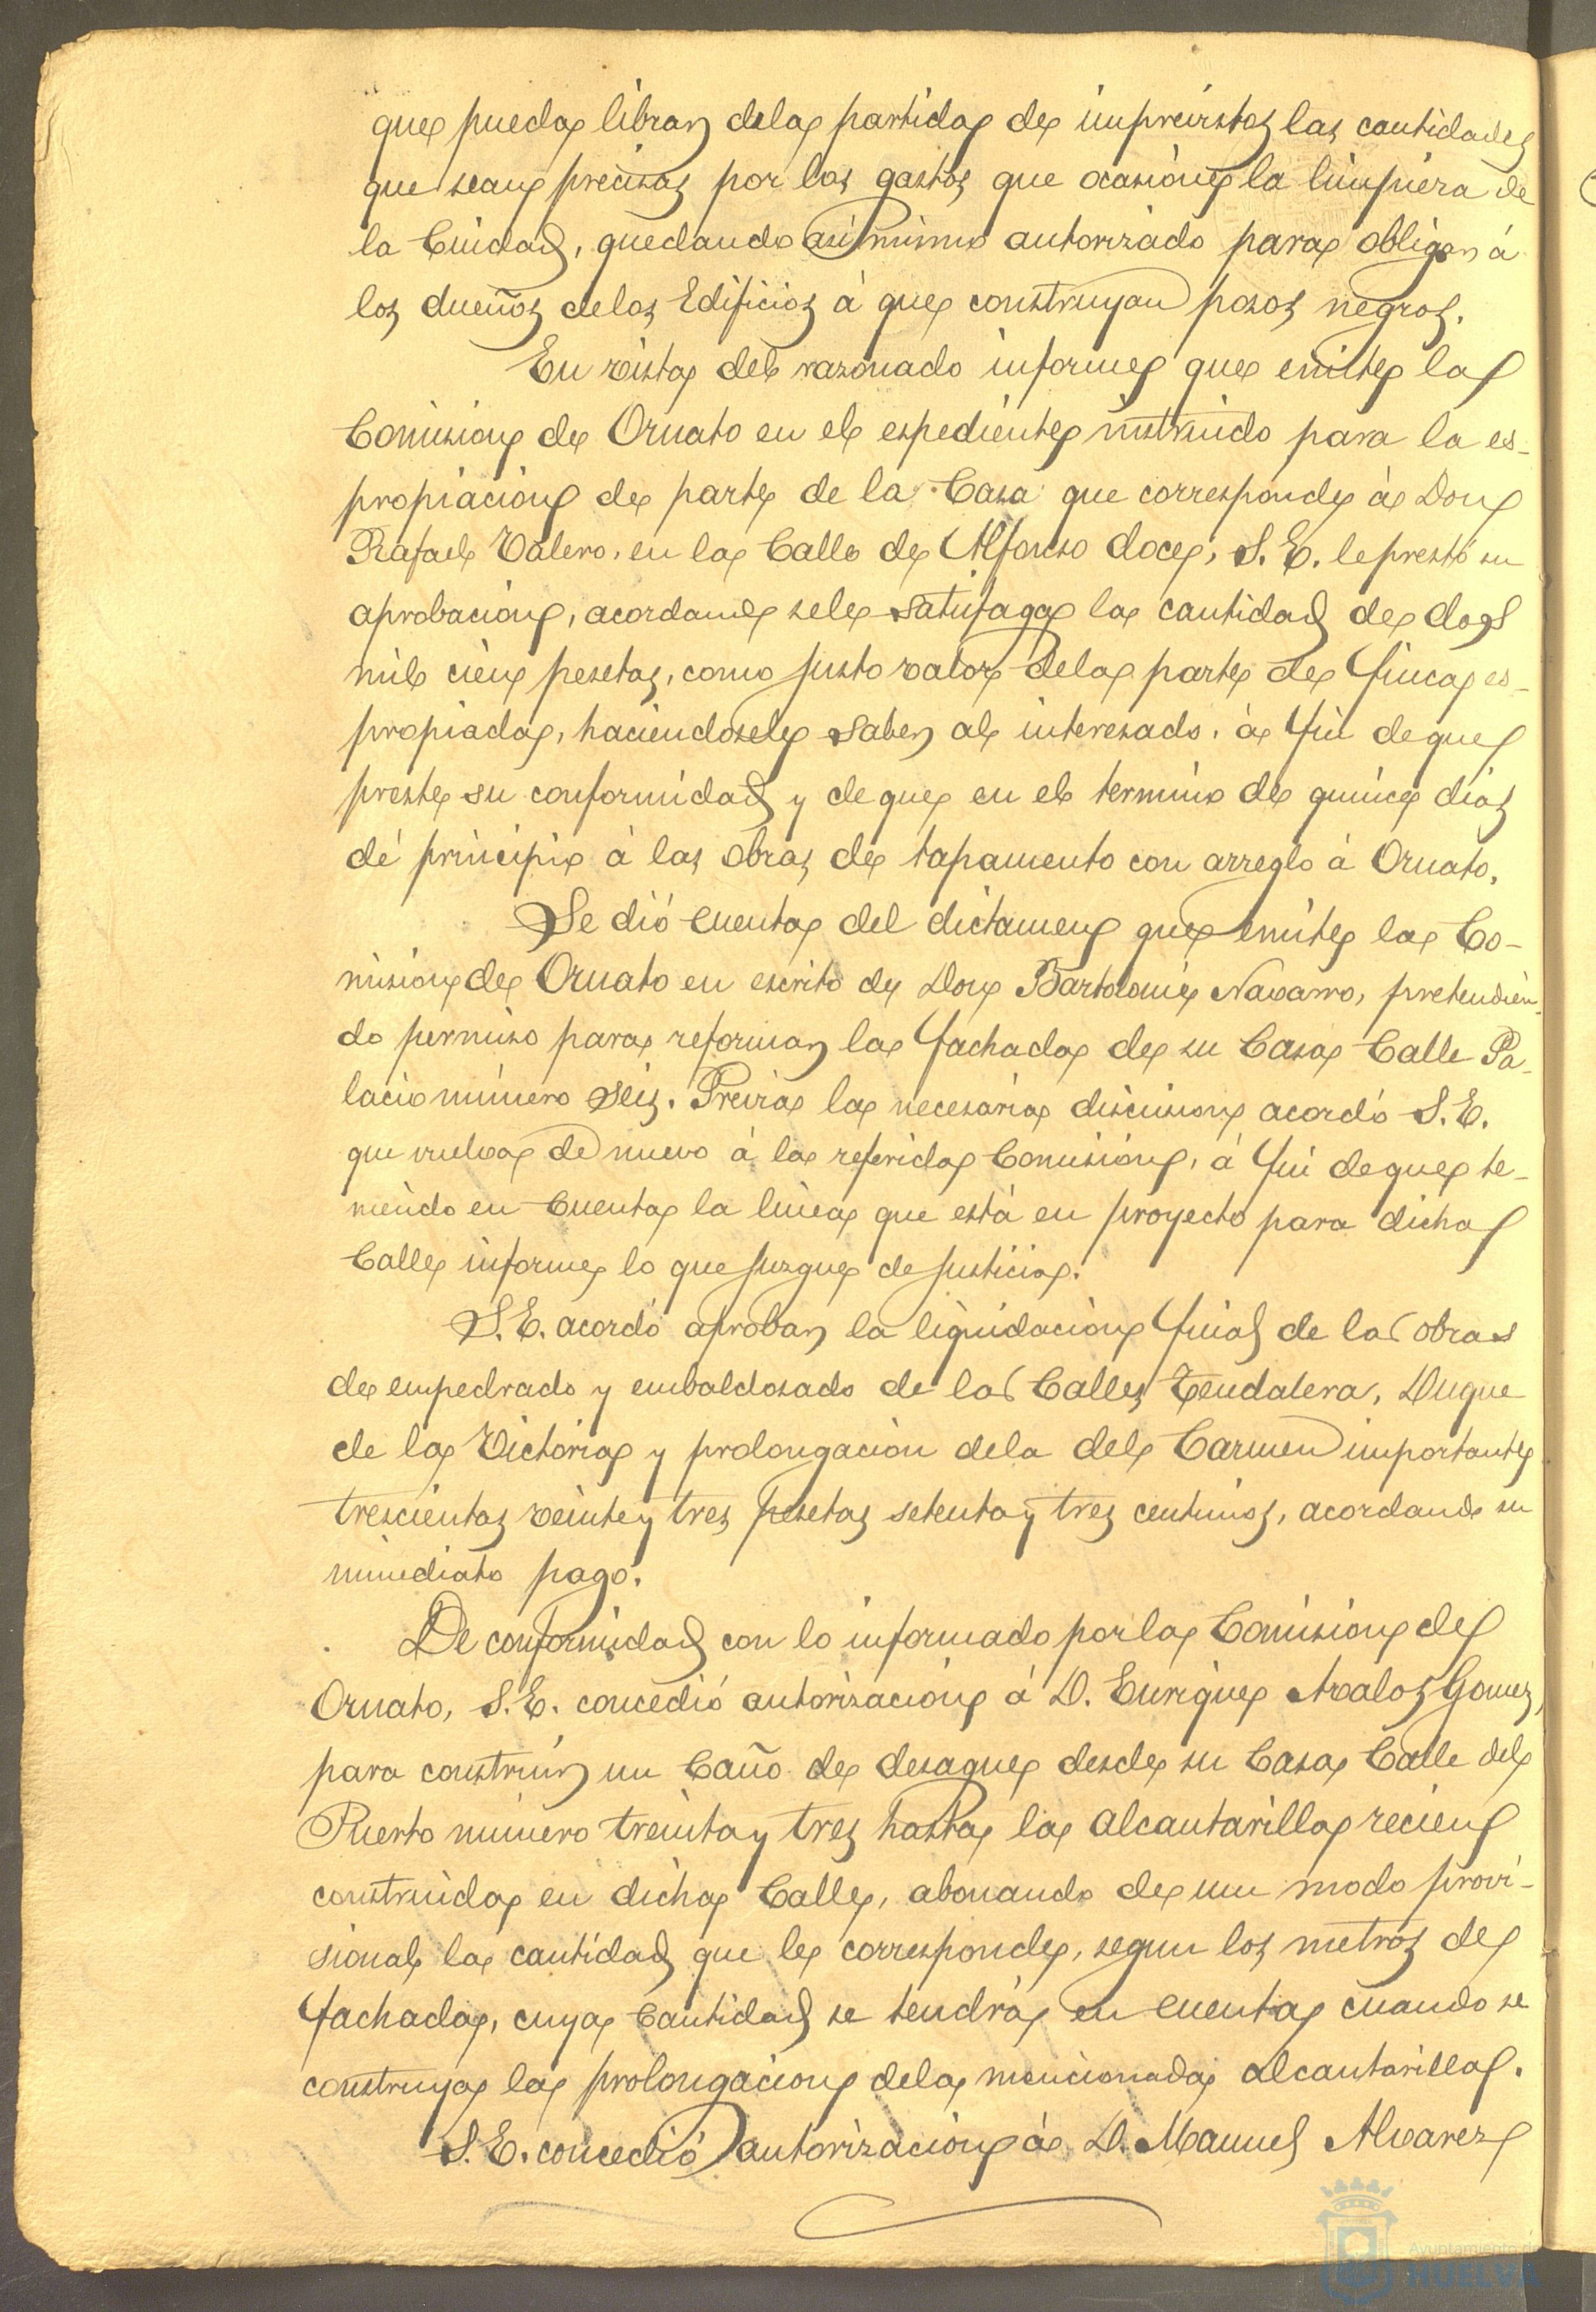 que pueda librar dela partida de imprevistos las cantidades
que sean precisas por los gastos que ocasione la limpieza de
la Ciudad, quedando asi mismo autorizado para obligar á
los dueños delos Edificios á que construyan posos negros.
En vista del razonado informe que emite la
Comision de Ornato en el espediente instruido para la es-
propiacion de parte de la Casa que corresponde á Don
Rafael Valero, en la Calle de Alfonso doce, S. E. le prestó su
aprobacion, acordando sele satisfaga la cantidad de dos
mil cien pesetas, como justo valor dela parte de finca es-
propiada, haciendosele saber al interesado, á fin deque
preste su conformidad y deque en el termino de quince dias
dé principio á las obras de tapamento con arreglo á Ornato.
Se dió cuenta del dictamen que emite la Co-
mision de Ornato en escrito de Don Bartolomé Navarro, pretendien-
do permiso para reformar la fachada de su Casa Calle Pa-
lacio número seis. Previa la necesaria discusion acordó S. E.
que vuelva de nuevo á la referida Comision, á fin deque te-
niendo en cuenta la linea que está en proyecto para dicha
Calle informe lo que juzgue de justicia.
S. E. acordó aprobar la liquidacion final de las obras
de empedrado y embaldosado de las Calles Tendalera, Duque
de la Victoria y prolongacion dela del Carmen importante
trescientas veinte y tres pesetas setenta y tres centimos, acordando su
inmediato pago.
De conformidad con lo informado por la Comision de
Ornato, S. E. concedió autorizacion á D. Enrique Avalos Gomez,
para construir un Caño de desague desde su Casa Calle del
Puerto número treinta y tres hasta la alcantarilla recien
construida en dicha Calle, abonando de un modo provi-
sional la cantidad que le corresponde, segun los metros de
fachada, cuya cantidad se tendrá en cuenta cuando se
construya la prolongacion dela mencionada alcantarilla.
S. E. concedió autorizacion á D. Manuel Alvarez
Ayuntamiento de
HUELVA